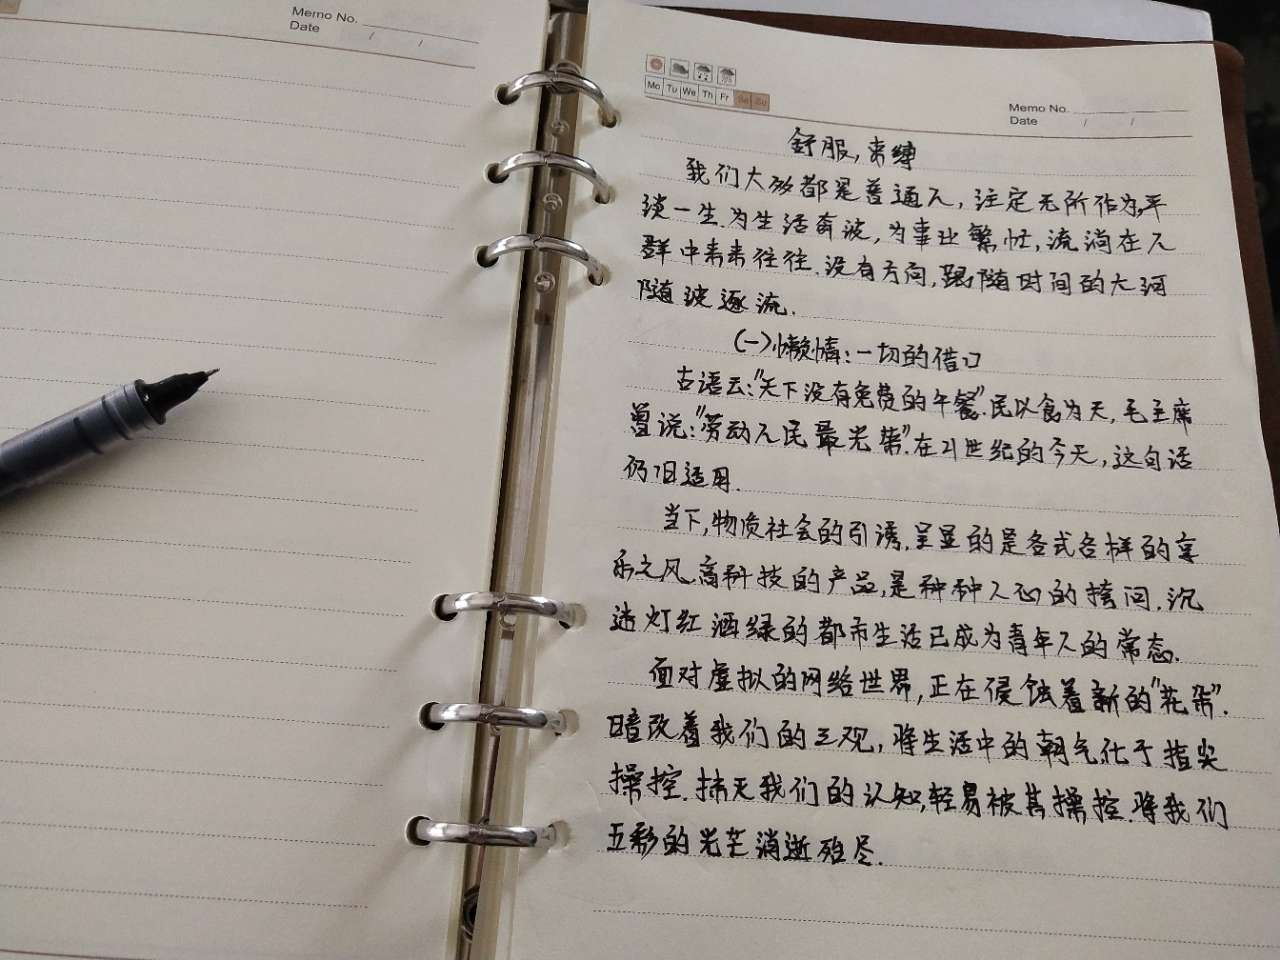 Memo No.
Date / /
Mo Tu We Th Fr Sa Su
Memo No.
Date / /
舒服,束缚
我们大多都是普通人,注定无所作为,平
淡一生.为生活奔波,为事业繁忙,流淌在人
群中来来往往.没有方向,跟随时间的大河
随波逐流.
(一)懒惰:一切的借口
古语云:"天下没有免费的午餐".民以食为天,毛主席
曾说:"劳动人民最光荣".在21世纪的今天,这句话
仍旧适用.
当下,物质社会的引诱,呈显的是各式各样的享
乐之风.高科技的产品,是种种人心的拷问.沉
迷灯红酒绿的都市生活已成为青年人的常态.
面对虚拟的网络世界,正在侵蚀着新的"花朵".
暗改着我们的三观,将生活中的朝气化于指尖
操控.抹灭我们的认知,轻易被其操控.将我们
五彩的光芒消逝殆尽.